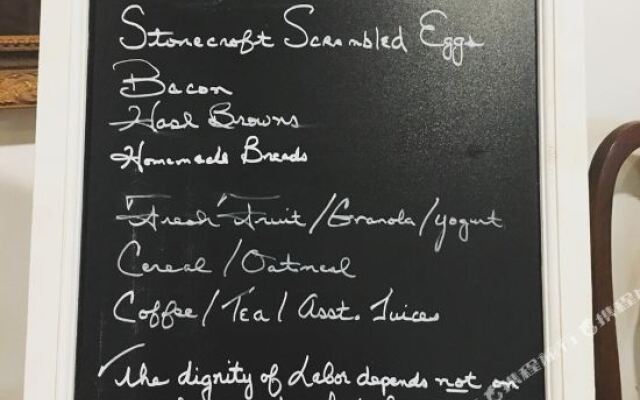 Stonecroft Scrambled Eggs
Bacon
Hash Browns
Homemade Breads
"Fresh" Fruit/Granola/yogurt
Cereal/Oatmeal
Coffee/Tea/Asst. Juices
The dignity of Labor depends not on